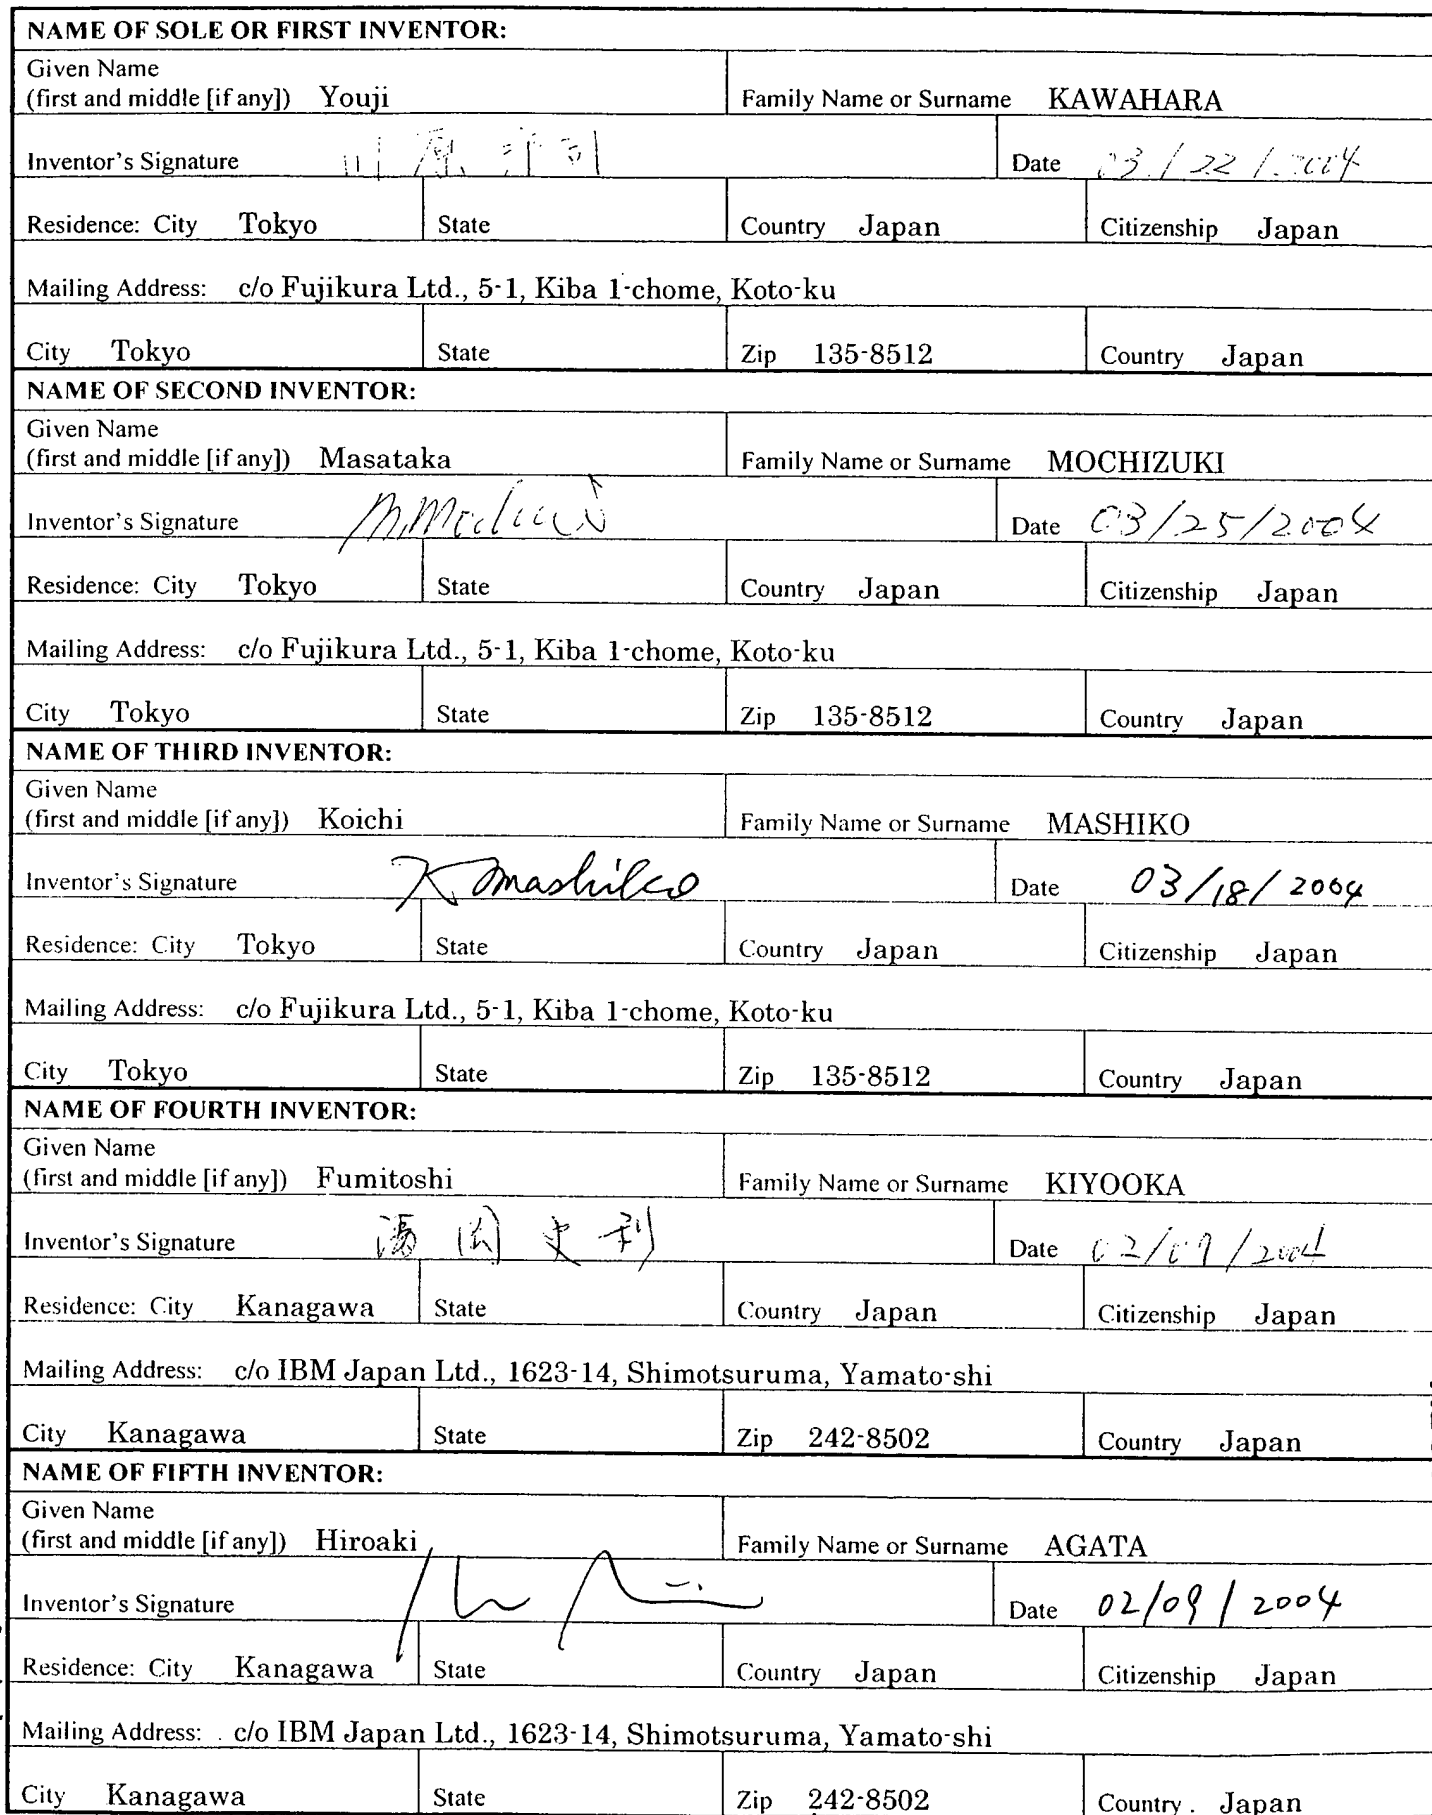 NAME OF SOLE OR FIRST INVENTOR:
Given Name
(first and middle [if any]) Youji Family Name or Surname KAWAHARA
Inventor's Signature 川原洋司 Date 03/22/2004
Residence: City Tokyo State Country Japan Citizenship Japan
Mailing Address: c/o Fujikura Ltd., 5-1, Kiba 1-chome, Koto-ku
City Tokyo State Zip 135-8512 Country Japan
NAME OF SECOND INVENTOR:
Given Name
(first and middle [if any]) Masataka Family Name or Surname MOCHIZUKI
Inventor's Signature Date 03/25/2004
Residence: City Tokyo State Country Japan Citizenship Japan
Mailing Address: c/o Fujikura Ltd., 5-1, Kiba 1-chome, Koto-ku
City Tokyo State Zip 135-8512 Country Japan
NAME OF THIRD INVENTOR:
Given Name
(first and middle [if any]) Koichi Family Name or Surname MASHIKO
Inventor's Signature K. Mashiko Date 03/18/2004
Residence: City Tokyo State Country Japan Citizenship Japan
Mailing Address: c/o Fujikura Ltd., 5-1, Kiba 1-chome, Koto-ku
City Tokyo State Zip 135-8512 Country Japan
NAME OF FOURTH INVENTOR:
Given Name
(first and middle [if any]) Fumitoshi Family Name or Surname KIYOOKA
Inventor's Signature Date 02/09/2004
Residence: City Kanagawa State Country Japan Citizenship Japan
Mailing Address: c/o IBM Japan Ltd., 1623-14, Shimotsuruma, Yamato-shi
City Kanagawa State Zip 242-8502 Country Japan
NAME OF FIFTH INVENTOR:
Given Name
(first and middle [if any]) Hiroaki Family Name or Surname AGATA
Inventor's Signature Date 02/09/2004
Residence: City Kanagawa State Country Japan Citizenship Japan
Mailing Address: c/o IBM Japan Ltd., 1623-14, Shimotsuruma, Yamato-shi
City Kanagawa State Zip 242-8502 Country Japan